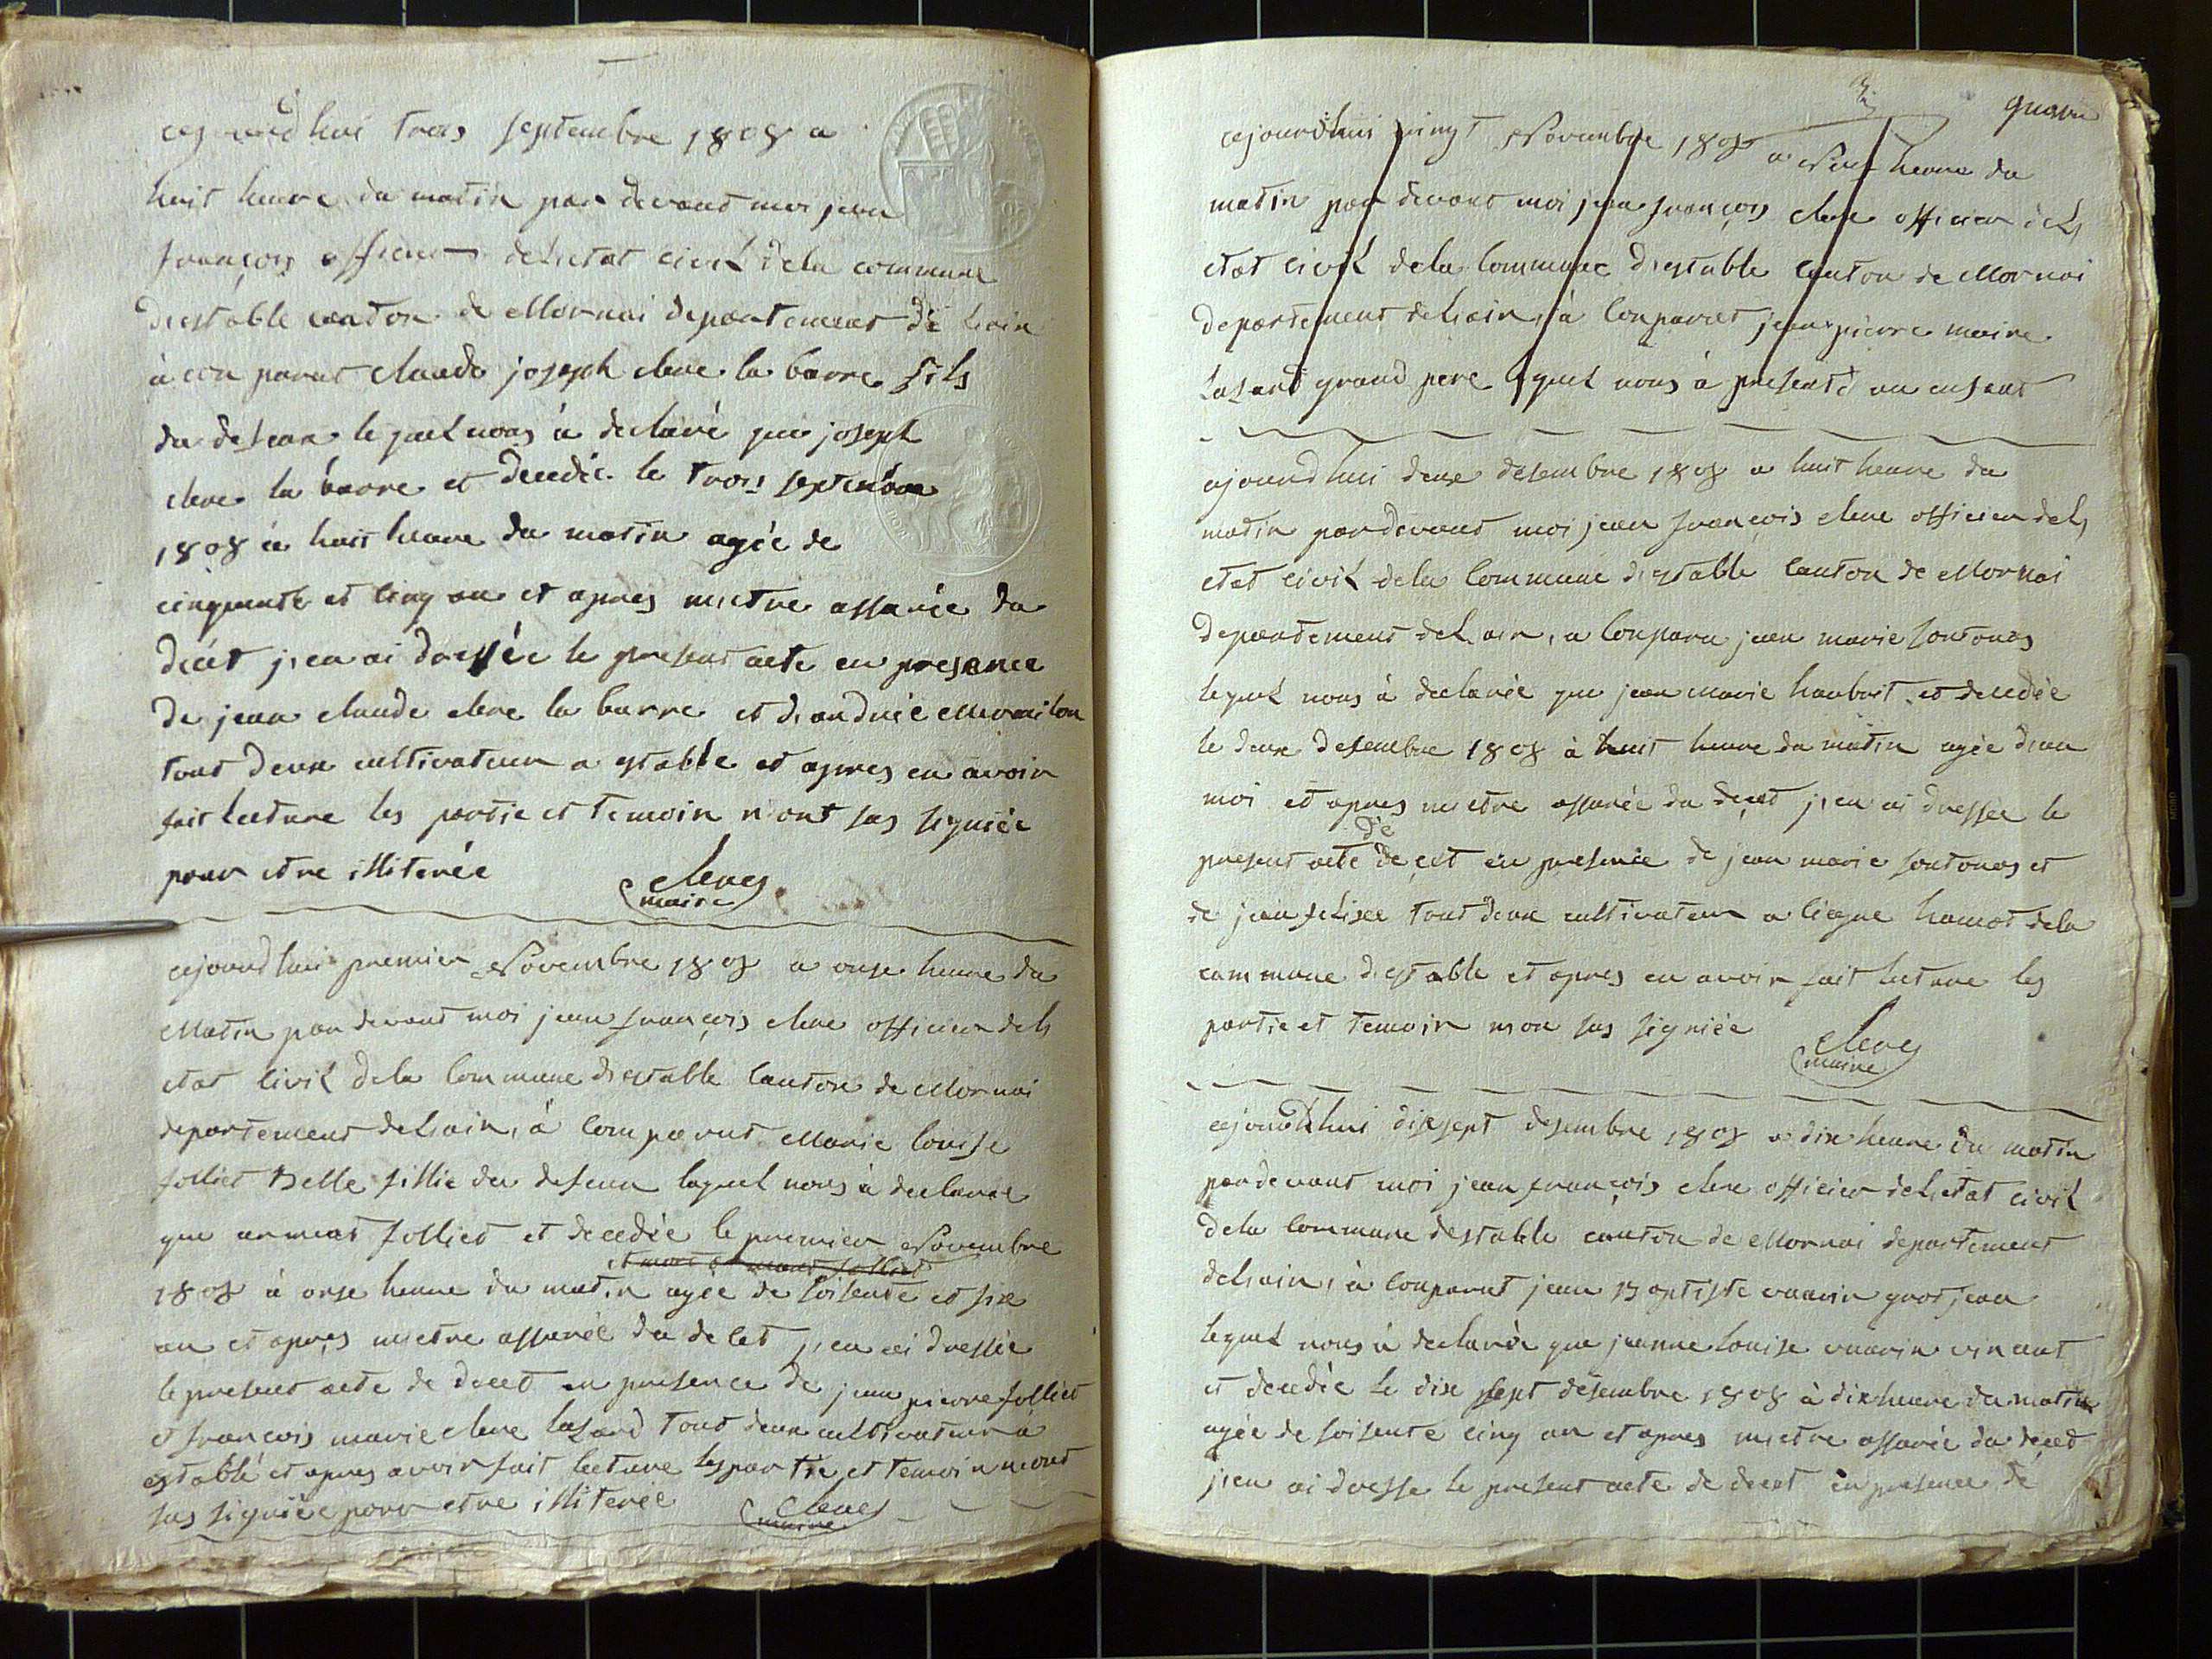 cejourdhui trois septembre 1808 a
huit heure du matin par devant moi jean
françois officier delietat civil dela commune
diestable canton de Mornai departement de hain
à con parut claude joseph clere la barre fils
du defean le quel nous à declaré que joseph
clere la barre et decedée le trois septembre
1808 à huit heure du matin agée de
cinquante et cinq an et apres mietre assurée du
decet jien ai dressée le present acte en presence
de jean claude clere la barre et diandrée
tout deux cultivateur a estable et apres en avoir
fait lecture les partie et temoin niont sas signiée
pour etre illiterée
clere
maire
cejourdhui premier Novembre 1808 a onse heure du
Matin par devant moi jean françois clere officier dels
etat civil dela commune diestable canton de Mornai
departement deliain, à comparut Marie louise
folliet Belle fillie du defeun laquel nous à declarae
que folliet et decedée le premier Novembre
1808 à onse heure du matin agée de soisente et six
an et apres mietre assurée du decet jien ai dressée
le present acte de decet en presence de jean pierre folliet
et françois marie clere lasard tout deux cultivateur à
estable et apres avoir fait lecture les partie et temoin niont
sas signiée pour etre illiterée clere
maire
cejourdhui vingt Novembre 1808 a Neuf heure du
matin par devant moi jean françois clere officier dels
etat civil dela commune diestable canton de Mornai
departement deliain, à conparut jean pierre maire
lasard grand pere lequel nous à presenté un enfant
cejourdhui deux desembre 1808 a huit heure du
matin pardevant moi jean françois clere officier dels
etat civil dela commune diestable canton de Mornai
departement deliain, a conparu jean marie sontonas
lequel nous à declarée que jean marie haubrit et decedée
le deux desembre 1808 à huit heure du matin agée diun
moi et apres mietre assurée du decet jien ai dressee le
present acte de decet en presence de jean marie sontonas et
de jean tout deux cultivateur a ciegne hamot dela
commune diestable et apres en avoir fait lecture les
partie et temoin nion sas signiée
clere
maire
cejourdhui disesept desembre 1808 a dix heure du matin
pardevant moi jean françois clere officier delietat civil
dela commune destable canton de Mornai departement
deliain, à conparut jean Baptiste vuarin gros jean
lequel nous à declarée que jeanne louise vuarin vincent
et decedée le dix sept desembre 1808 à dix heure du matin
agée de soisente cinq an et apres mietre assurée du decet
jien ai dresse le present acte de decet en presence de